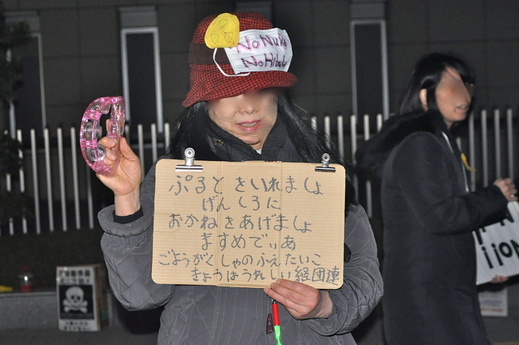 No Nuke
No H
ぷるとをいれましょ
げんしろに
おかねをあげましょ
ますめでぃあ
ごようがくしゃのふえたいこ
きょうはうれしい経団連
iiON